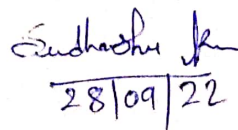 Sudhanshu
28/09/22